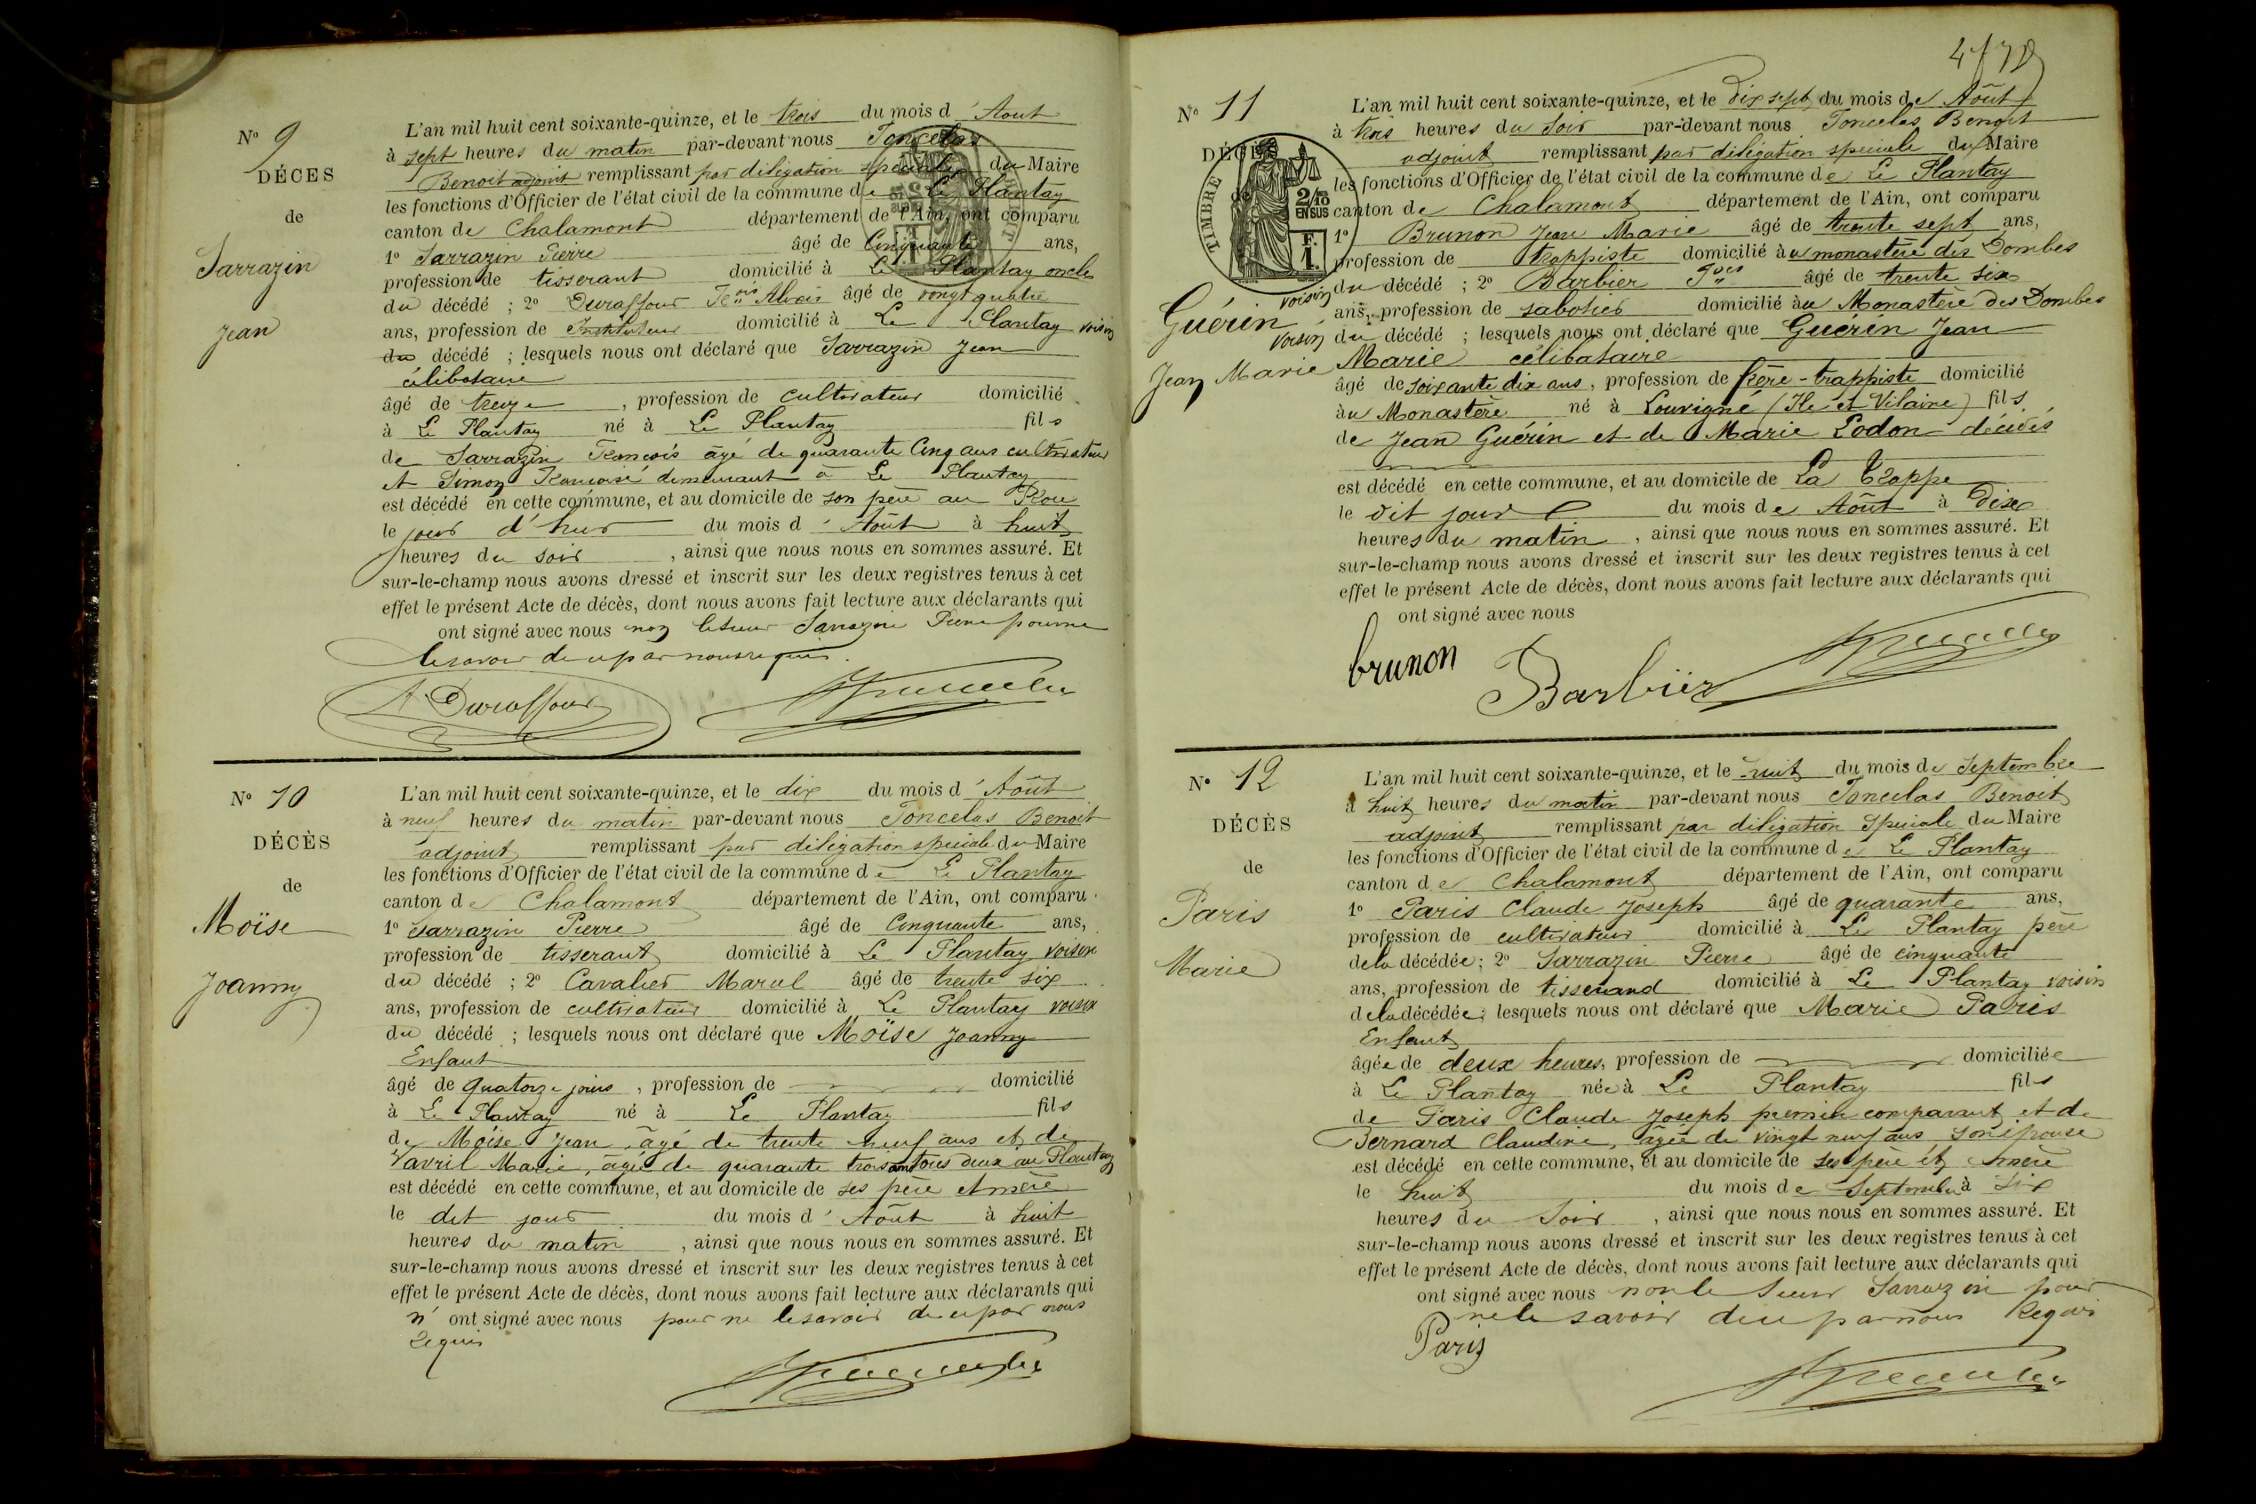 N° 9
DÉCES
de
Sarrazin
Jean
L'an mil huit cent soixante-quinze, et le trois du mois d'Aout
à sept heures du matin par-devant nous Joncelas
Benoit adjoint remplissant par déligation spéciale du Maire
les fonctions d'Officier de l'état civil de la commune de Le Plantay
canton de Chalamont département de l'Ain, ont comparu
1° Sarrazin Pierre âgé de Cinquante ans,
profession de tisserant domicilié à Le Plantay oncle
du décédé ; 2° Duraffour Alexis âgé de vingt quatre
ans, profession de Instituteur domicilié à Le Plantay voisin
du décédé ; lesquels nous ont déclaré que Sarrazin Jean
célibataire
âgé de treize , profession de cultivateur domicilié
à Le Plantay né à Le Plantay fils
de Sarrazin François âgé de quarante Cinq ans cultivateur
et Simon Françoise demeurant à Le Plantay
est décédé en cette commune, et au domicile de son père au
le jour d'hier du mois d'Août à huit
heures du soir , ainsi que nous nous en sommes assuré. Et
sur-le-champ nous avons dressé et inscrit sur les deux registres tenus à cet
effet le présent Acte de décès, dont nous avons fait lecture aux déclarants qui
ont signé avec nous non le sieur Sarrazin Pierre pour ne
le savoir de ce par nous requis.
A. Duraffour
N° 10
DÉCÈS
de
Moïse
Joanny
L'an mil huit cent soixante-quinze, et le dix du mois d'Août
à neuf heures du matin par-devant nous Joncelas Benoit
adjoint remplissant par déligation spéciale du Maire
les fonctions d'Officier de l'état civil de la commune de Le Plantay
canton de Chalamont département de l'Ain, ont comparu
1° Sarrazin Pierre âgé de Cinquante ans,
profession de tisserant domicilié à Le Plantay voisin
du décédé ; 2° Cavalier Marul âgé de trente six
ans, profession de cultivateur domicilié à Le Plantay voisin
du décédé ; lesquels nous ont déclaré que Moïse Joanny
Enfant
âgé de quatorze jours , profession de domicilié
à Le Plantay né à Le Plantay fils
de Moïse Jean, âgé de trente neuf ans et de
avril Marie, âgée de quarante trois ans tous deux au Plantay
est décédé en cette commune, et au domicile de ses père et mère
le dit jour du mois d'Août à huit
heures du matin , ainsi que nous nous en sommes assuré. Et
sur-le-champ nous avons dressé et inscrit sur les deux registres tenus à cet
effet le présent Acte de décès, dont nous avons fait lecture aux déclarants qui
n'ont signé avec nous pour ne le savoir de ce par nous
requis
N° 11
DÉCÈS
de
Guérin
Jean Marie
TIMBRE
2/10
EN SUS
F.
1.
L'an mil huit cent soixante-quinze, et le dix sept du mois de Août
à trois heures du soir par-devant nous Joncelas Benoit
adjoint remplissant par déligation spéciale du Maire
les fonctions d'Officier de l'état civil de la commune de Le Plantay
canton de Chalamont département de l'Ain, ont comparu
1° Brunon Jean Marie âgé de trente sept ans,
profession de trappiste domicilié au monastère des Dombes
voisin du décédé ; 2° Barbier âgé de trente six
ans, profession de sabotier domicilié au Monastère des Dombes
voisin du décédé ; lesquels nous ont déclaré que Guérin Jean
Marie célibataire
âgé de soixante dix ans, profession de frère-trappiste domicilié
au Monastère né à Louvigné (Ile et Vilaine) fils
de Jean Guérin et de Marie Lodon décédés
est décédé en cette commune, et au domicile de La Trappe
le dit jour du mois de Août à Dix
heures du matin , ainsi que nous nous en sommes assuré. Et
sur-le-champ nous avons dressé et inscrit sur les deux registres tenus à cet
effet le présent Acte de décès, dont nous avons fait lecture aux déclarants qui
ont signé avec nous
brunon
Barbier
N° 12
DÉCÈS
de
Paris
Marie
L'an mil huit cent soixante-quinze, et le huit du mois de septembre
à huit heures du matin par-devant nous Joncelas Benoit
adjoint remplissant par déligation Spéciale du Maire
les fonctions d'Officier de l'état civil de la commune de Le Plantay
canton de Chalamont département de l'Ain, ont comparu
1° Paris Claude Joseph âgé de quarante ans,
profession de cultivateur domicilié à Le Plantay père
de la décédée ; 2° Sarrazin Pierre âgé de cinquante
ans, profession de tisserand domicilié à Le Plantay voisin
de la décédée ; lesquels nous ont déclaré que Marie Paris
Enfant
âgée de deux heures, profession de domiciliée
à Le Plantay née à Le Plantay fils
de Paris Claude Joseph premier comparant et de
Bernard Claudine, âgée de vingt neuf ans, son épouse
est décédé en cette commune, et au domicile de ses père et mère
le huit du mois de Septembre à six
heures du Soir , ainsi que nous nous en sommes assuré. Et
sur-le-champ nous avons dressé et inscrit sur les deux registres tenus à cet
effet le présent Acte de décès, dont nous avons fait lecture aux déclarants qui
ont signé avec nous non le Sieur Sarrazin pour
ne le savoir de ce par nous Requis
Paris